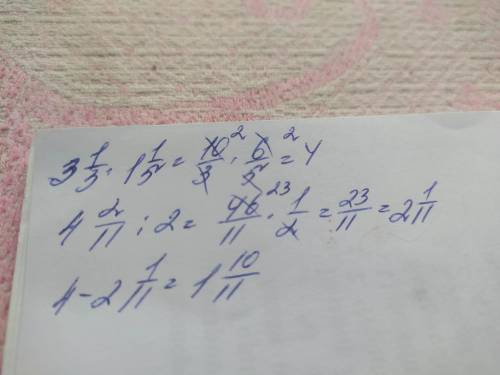 3 1/3 · 1 1/5 = 10/3 · 6/5 = 4
4 2/11 : 2 = 46/11 · 1/2 = 23/11 = 2 1/11
4 - 2 1/11 = 1 10/11